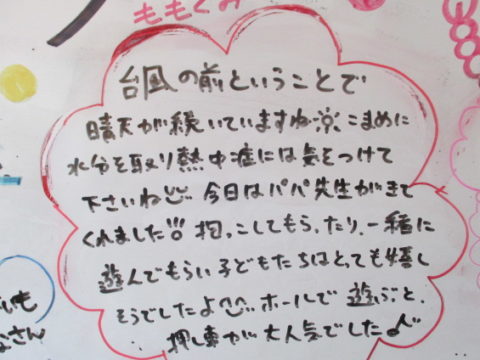 ももぐみ
台風の前ということで
晴天が続いていますね☼ こまめに
水分を取り熱中症には気をつけて
下さいね 今日はパパ先生がきて
くれました!! 抱っこしてもらったり、一緒に
遊んでもらい子どもたちはとっても嬉し
そうでしたよ ホールで遊ぶと、
押し車が大人気でした♪